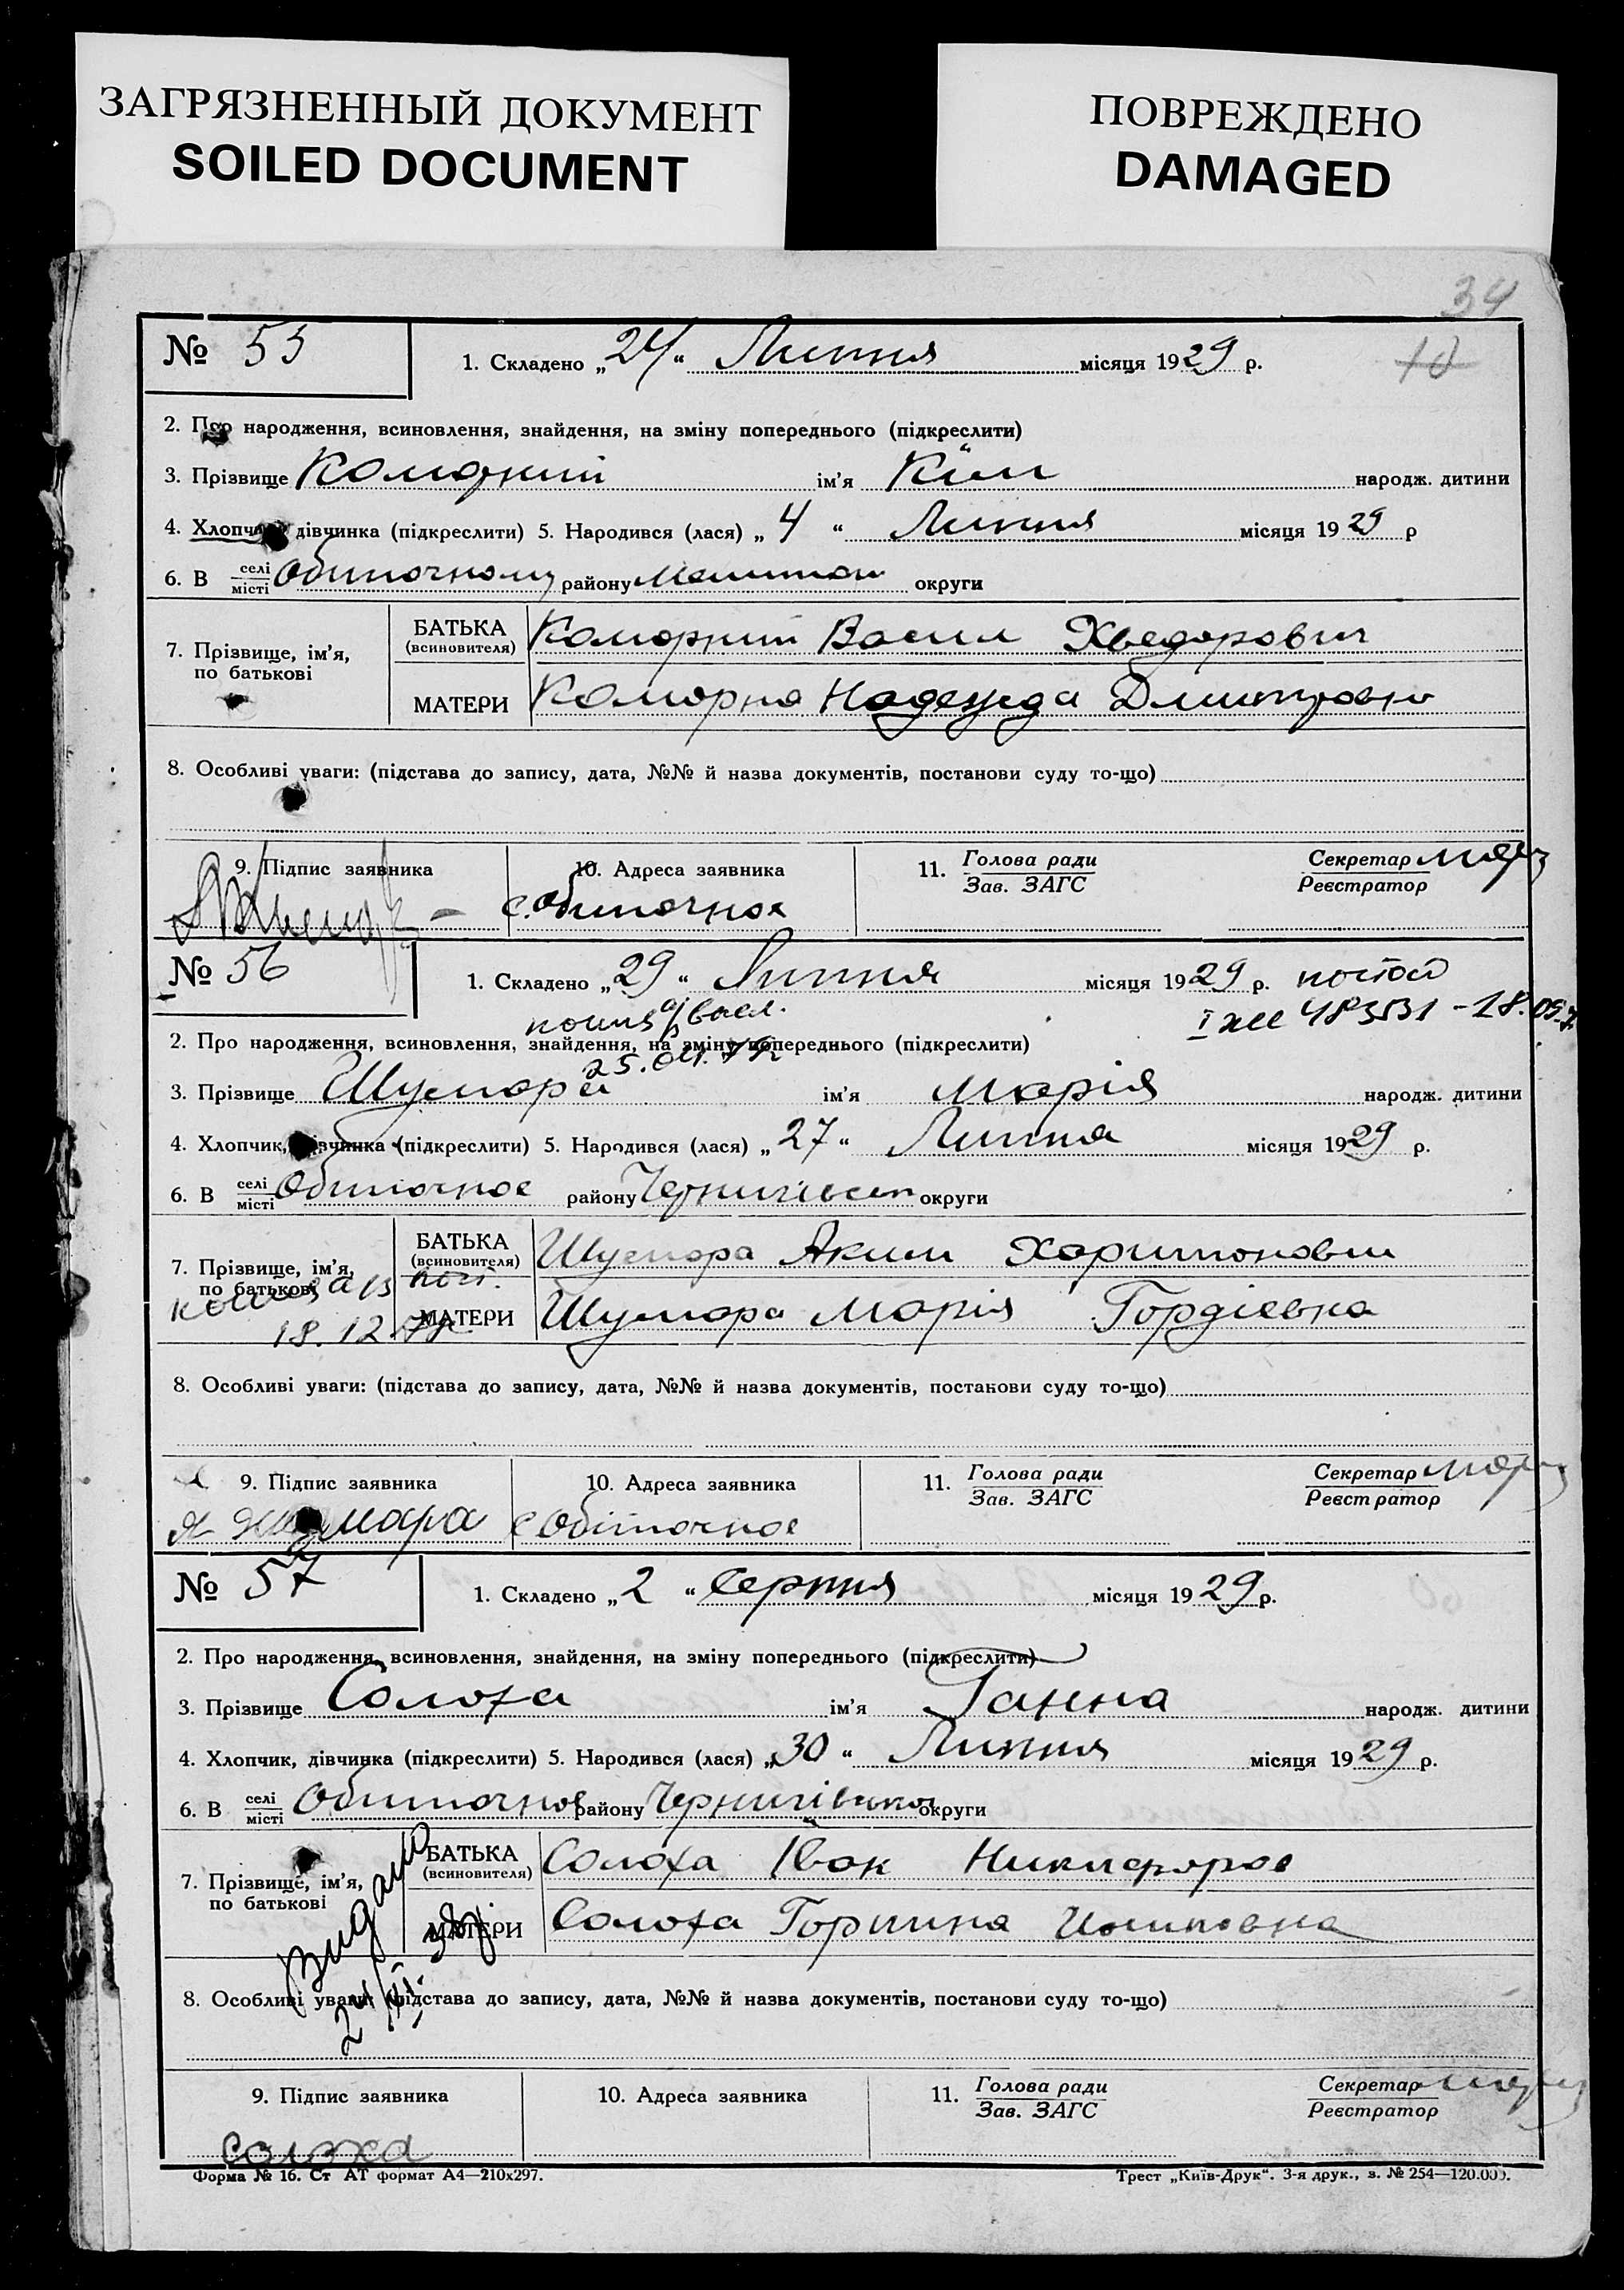 ЗАГРЯЗНЕННЫЙ ДОКУМЕНТ
SOILED DOCUMENT
ПОВРЕЖДЕНО
DAMAGED
34
10
№ 55
1. Складено „24“ Липня місяця 1929 р.
2. Про народження, всиновлення, знайдення, на зміну попереднього (підкреслити)
3. Прізвище Коморний ім'я Кім народж. дитини
4. Хлопчик, дівчинка (підкреслити) 5. Народився (лася) „4“ Липня місяця 1929 р
6. В селі/місті Обиточному району Мелитоп округи
7. Прізвище, ім'я, по батькові
БАТЬКА (всиновителя) Коморний Васил Хведорович
МАТЕРИ Коморна Надежда Дмитровна
8. Особливі уваги: (підстава до запису, дата, №№ й назва документів, постанови суду то-що)
9. Підпис заявника 10. Адреса заявника 11. Голова ради Секретар
Зав. ЗАГС Реєстратор
с. Обиточное
№ 56
1. Складено „29“ Липня місяця 1929 р.
483531 - 18.05.
2. Про народження, всиновлення, знайдення, на зміну попереднього (підкреслити)
3. Прізвище Шумара ім'я Марія народж. дитини
4. Хлопчик, дівчинка (підкреслити) 5. Народився (лася) „27“ Липня місяця 1929 р.
6. В селі/місті Обиточное району Чернигівськ округи
7. Прізвище, ім'я, по батькові
БАТЬКА (всиновителя) Шумара Аким Харитонович
МАТЕРИ Шумара Марія Гордієвна
18.12
8. Особливі уваги: (підстава до запису, дата, №№ й назва документів, постанови суду то-що)
9. Підпис заявника 10. Адреса заявника 11. Голова ради Секретар
Зав. ЗАГС Реєстратор
с Обіточное
№ 57
1. Складено „2“ Серпня місяця 1929 р.
2. Про народження, всиновлення, знайдення, на зміну попереднього (підкреслити)
3. Прізвище Солоха ім'я Ганна народж. дитини
4. Хлопчик, дівчинка (підкреслити) 5. Народився (лася) „30“ Липня місяця 1929 р.
6. В селі/місті Обиточное району Чернигівського округи
7. Прізвище, ім'я, по батькові
БАТЬКА (всиновителя) Солоха Іван Никифоров
МАТЕРИ Солоха Горпина
Видано
8. Особливі уваги: (підстава до запису, дата, №№ й назва документів, постанови суду то-що)
9. Підпис заявника 10. Адреса заявника 11. Голова ради Секретар
Зав. ЗАГС Реєстратор
Солоха
Форма № 16. Ст АТ формат А4—210х297.
Трест „Київ-Друк“. 3-я друк., з. № 254—120.000.